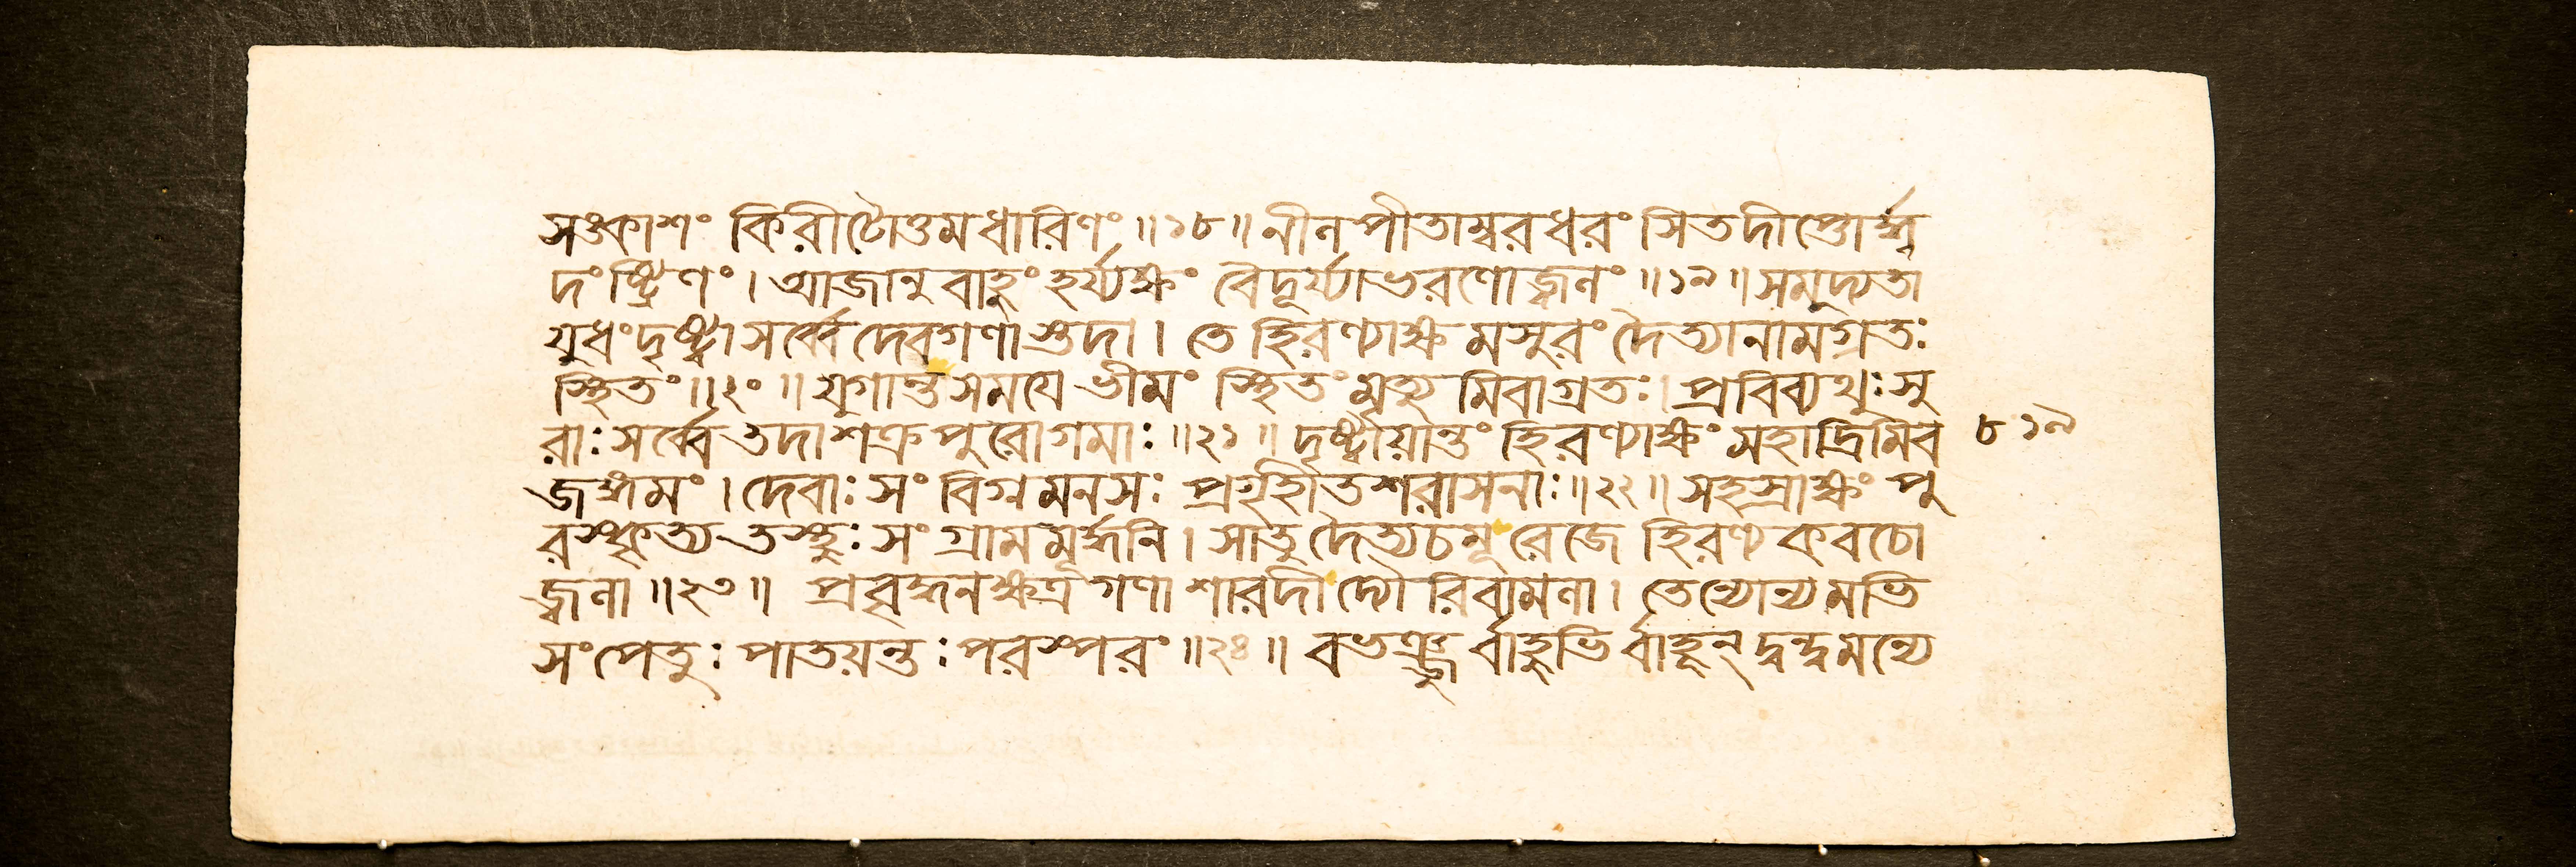 সঙ্কাশং কিরীটোত্তমধারিণং ॥১৮॥ নীলপীতাম্বরধরং সিতদীপ্তোর্দ্ধ
দংষ্ট্রিণং । আজানুবাহুং হর্য্যক্ষং বৈদূর্য্যাভরণোজ্জ্বলং ॥১৯॥ সমুদ্যতা
যুধং দৃষ্ট্বা সর্ব্বে দেবগণাস্তদা । তে হিরণ্যাক্ষমসুরং দৈত্যানামগ্রতঃ
স্থিতং ॥২০॥ যুগান্তসময়ে ভীমং স্থিতং মৃত্যুমিবাগ্রতঃ । প্রবিব্যথুঃ সু
রাঃ সর্ব্বে তদা শক্রপুরোগমাঃ ॥২১॥ দৃষ্ট্বায়ান্তং হিরণ্যাক্ষং মহাদ্রিমিব
৮১৯
জঙ্গমং । দেবাঃ সংবিগ্নমনসঃ প্রগৃহীতশরাসনাঃ ॥২২॥ সহস্রাক্ষং পু
রস্কৃত্য তস্থুঃ সংগ্রামমূর্দ্ধনি । সা তু দৈত্যচমূ রেজে হিরণ্যকবচো
জ্জ্বলা ॥২৩॥ প্রবৃদ্ধনক্ষত্রগণা শারদী দ্যৌরিবামলা । তেন্যোন্যমভি
সংপেতুঃ পাতয়ন্তঃ পরস্পরং ॥২৪॥ বভঞ্জুর্বাহুভির্বাহূন্ দ্বন্দ্বমন্যে